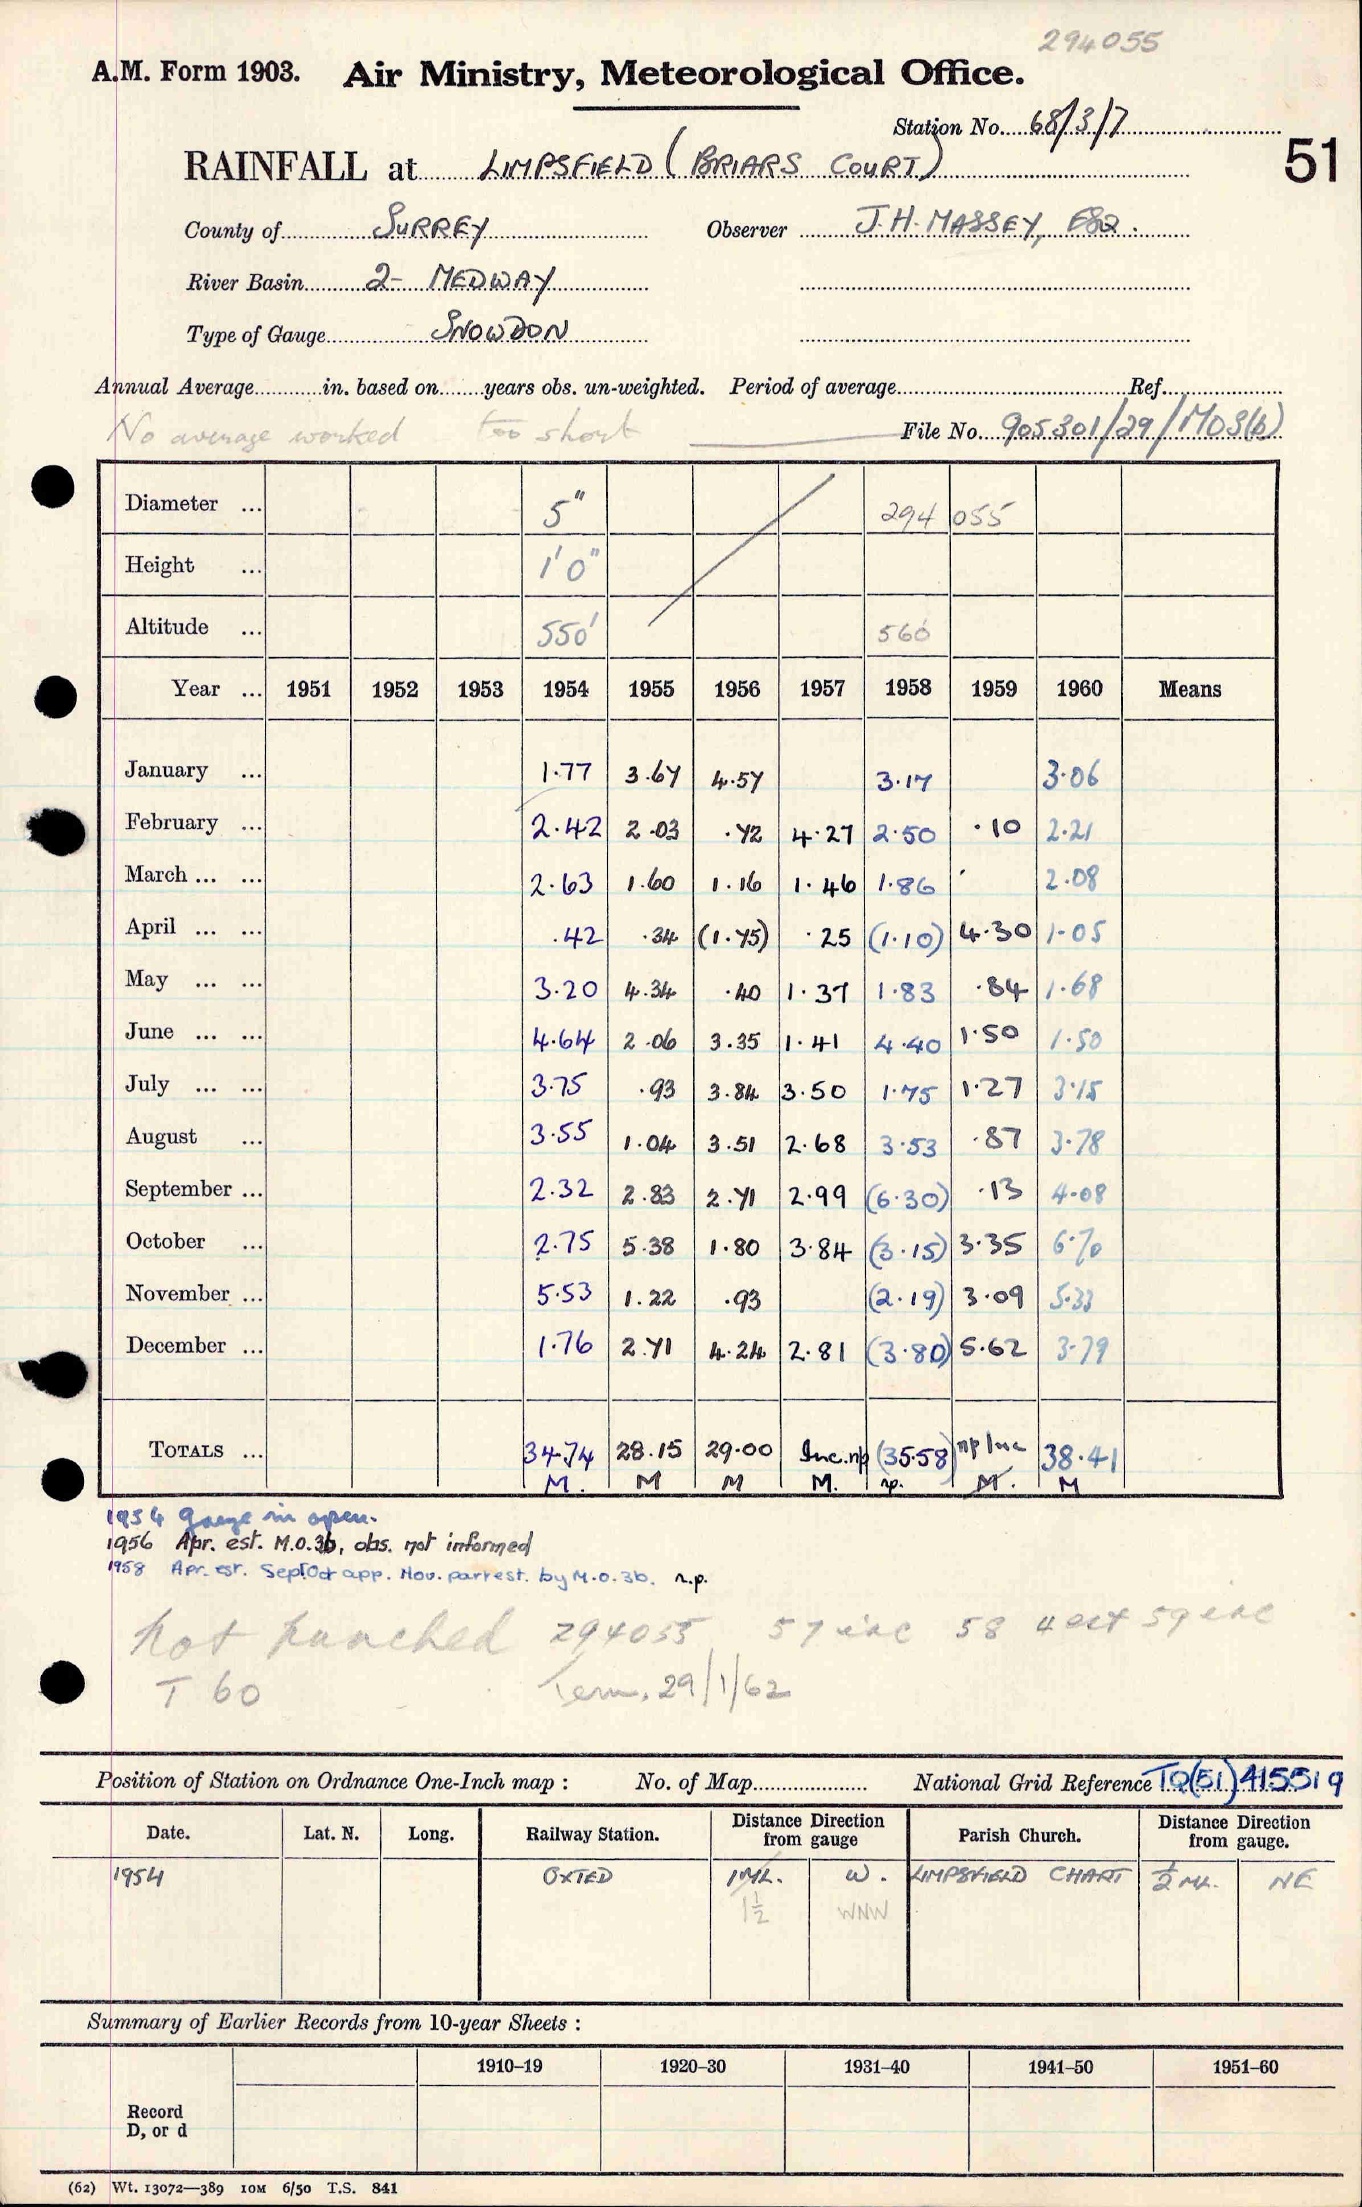 294055
A.M. Form 1903. Air Ministry, Meteorological Office.
Station No. 68/3/7
51
RAINFALL at LIMPSFIELD (BRIARS COURT)
County of SURREY Observer J.H. MASSEY, ESQ.
River Basin 2- MEDWAY
Type of Gauge SNOWDON
Annual Average in. based on years obs. un-weighted. Period of average Ref.
No average worked too short
File No. 905301/29/MO3(b)
Diameter ... 5" 294 055
Height ... 1'0"
Altitude ... 550' 560
Year ... 1951 1952 1953 1954 1955 1956 1957 1958 1959 1960 Means
January ... 1.77 3.67 4.57 3.17 3.06
February ... 2.42 2.03 .72 4.27 2.50 .10 2.21
March ... ... 2.63 1.60 1.16 1.46 1.86 2.08
April ... ... .42 .34 (1.75) .25 (1.10) 4.30 1.05
May ... ... 3.20 4.34 .40 1.37 1.83 .84 1.68
June ... ... 4.64 2.06 3.35 1.41 4.40 1.50 1.50
July ... ... 3.75 .93 3.84 3.50 1.75 1.27 3.15
August ... 3.55 1.04 3.51 2.68 3.53 .87 3.78
September ... 2.32 2.83 2.71 2.99 (6.30) .13 4.08
October ... 2.75 5.38 1.80 3.84 (3.15) 3.35 6.70
November ... 5.53 1.22 .93 (2.19) 3.09 5.33
December ... 1.76 2.71 4.24 2.81 (3.80) 5.62 3.79
TOTALS ... 34.74 28.15 29.00 Inc.np (35.58) np Inc 38.41
M. M M M. np. M. M
1954 Gauge in open.
1956 Apr. est. M.O.3b, obs. not informed
1958 Apr. est. Sept. Oct app. Nov. part est. by M.O.3b. n.p.
not punched 294055 57 inc 58 4 est 59 inc
T 60 Term. 29/1/62
Position of Station on Ordnance One-Inch map : No. of Map National Grid Reference TQ(51)415519
Date. Lat. N. Long. Railway Station. Distance Direction from gauge Parish Church. Distance Direction from gauge.
1954 OXTED 1 ML. W. LIMPSFIELD CHART ½ ML. NE
1½ WNW
Summary of Earlier Records from 10-year Sheets :
1910–19 1920–30 1931–40 1941–50 1951–60
Record
D, or d
(62) Wt. 13072—389 10M 6/50 T.S. 841